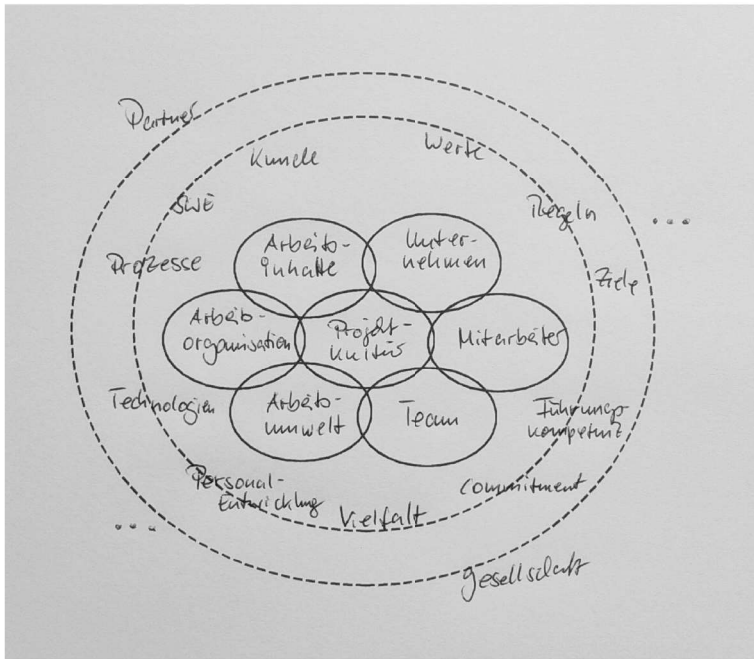 Partner
Kunde
Werte
SWE
Regeln
...
Arbeits-
inhalte
Unter-
nehmen
Prozesse
Ziele
Arbeits-
organisation
Projekt-
kultur
Mitarbeiter
Technologien
Arbeits-
umwelt
Team
Führungs-
kompetenz
Personal-
Entwicklung
Commitment
Vielfalt
...
Gesellschaft